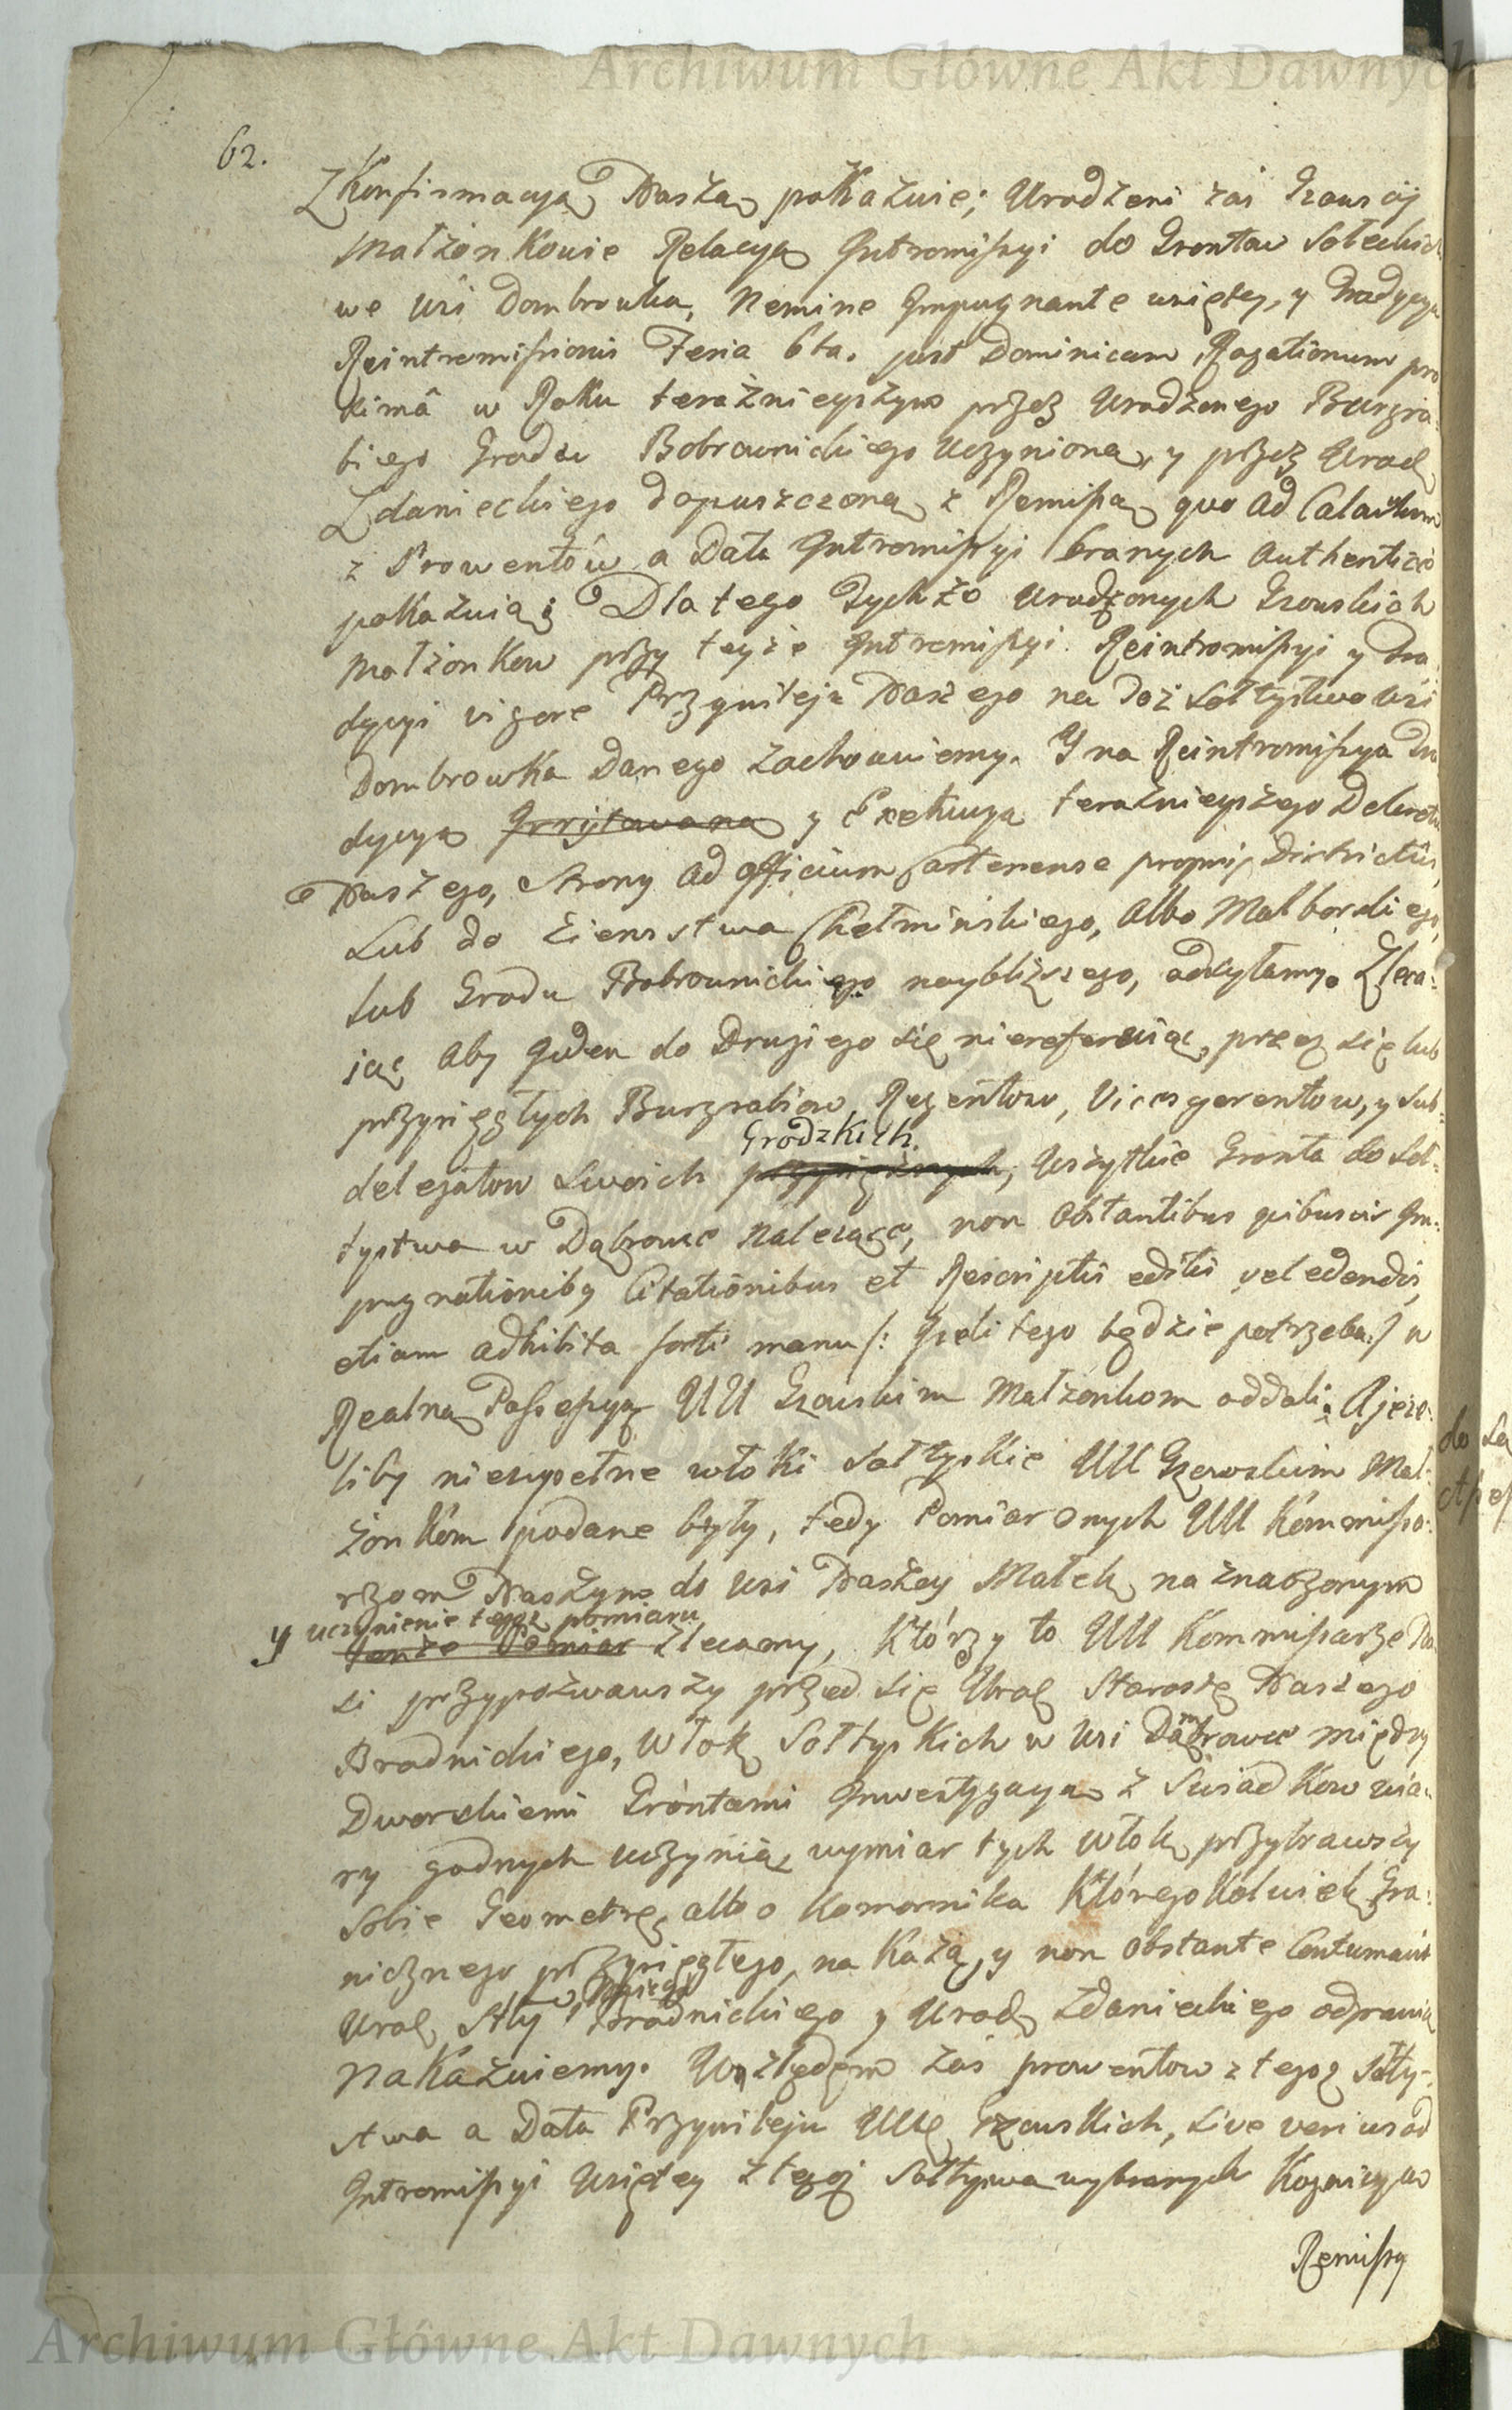 Archiwum Główne Akt Dawnych
62.
Z Konfirmacyą Naszą pokazuie; Urodzeni zaś Gzowscy
Małżonkowie Relacyą Intromissyi do Grontow Sołeckich
we wsi Dombrowka, Nemine Impugnante wziętey, y Tradycyą
Reintromissionis Feria 6ta. post Dominicam Rogationum pro
ximâ w Roku teraznieyszym przez Urodzonego Burgra-
biego Grodu Bobrownickiego uczynioną, y przez Urod
Zdanieckiego dopuszczoną z Remissą quo ad Calculum
z Prowentów a Data Intromissyi branych Authentice
pokazuią; Dlatego Tychże Urodzonych Gzowskich
Małżonkow przy teyże Intromissyi. Reintromissyi y Tra
dycyi vigore Przywileju Naszego na Toż Sołtystwo wsi
Dombrowka Danego zachowuiemy. Y na Reintromissyą Tra
dycyą y Exekucyą teraznieyszego Dekretu
Naszego, Strony ad Officium Castrense proprij Districtûs,
Lub do Ziemstwa Chełmińskiego, Albo Malborskiego,
lub Grodu Bobrownickiego naybliższego, odsyłamy. Zleca-
iąc Aby Ieden do Drugiego się niereferuiąc, przez się lub
przysięgłych Burgrabiow, Regentow, Vicesgerentow, y Sub-
Grodzkich.
delegatow Swoich przysiężnych, wszytkie Gronta do Soł-
tystwa w Dąbrowce należące, non obstantibus quibusvis Im-
pugnationibq Citationibus et Rescriptis editis vel edendis,
etiam adhibita forti manu /: Ieżeli tego będzie potrzeba :/ w
Realną Possessyą UU Gzowskim Małżonkom oddali; A jeże-
liby niezupełne włoki Sołtyskie UU Gzowskim Mał-
żonkom podane były, tedy Pomiar onych UU Kommissa-
rzom Naszym do wsi Naszey Małek naznaczonym
y uczynienie tegoż pomiaru
tenże Pomiar zlecamy, Którzy to UU Kommissarze Na
si przypozwawszy przed się Urod Starostę Naszego
Brodnickiego, Włok Sołtyskich w wsi Dąmbrowce między
Dworskiemi Gróntami Inwestygacyą z Swiadkow wia-
ry godnych uczynią, wymiar tych Włok, przybrawszy
Sobie Geometrę, albo Komornika Któregokolwiek Gra-
nicznego przysięgłego, na Każą, y non obstante Contumacia
Urod Stty Naszego Brodnickiego y Urod Zdanieckiego odprawić
Nakazuiemy. Względem zaś prowentow z tegoż Sołty-
stwa a Data Przywileju UU Gzowskich, Sive verius ad
Intromissyi wziętey z tegoż Sołtystwa wybranych
Remissy
do Są
Appel
Archiwum Główne Akt Dawnych